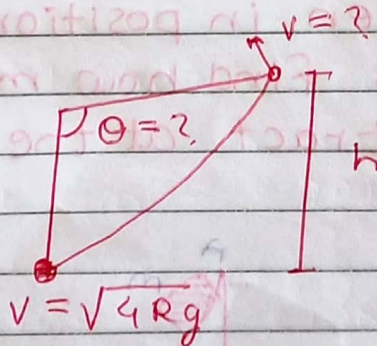 v = ?
θ = ?
h
v = √4Rg